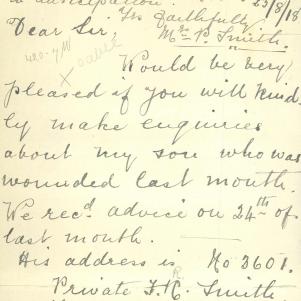 anticipation.
Yrs faithfully 23/8/18
Dear Sir, Mrs P. Smith.
Would be very
pleased if you will kind-
ly make enquiries
about my son who was
wounded last month.
We recd advice on 24th of
last month.
His address is No 3601.
Private F. R. Smith